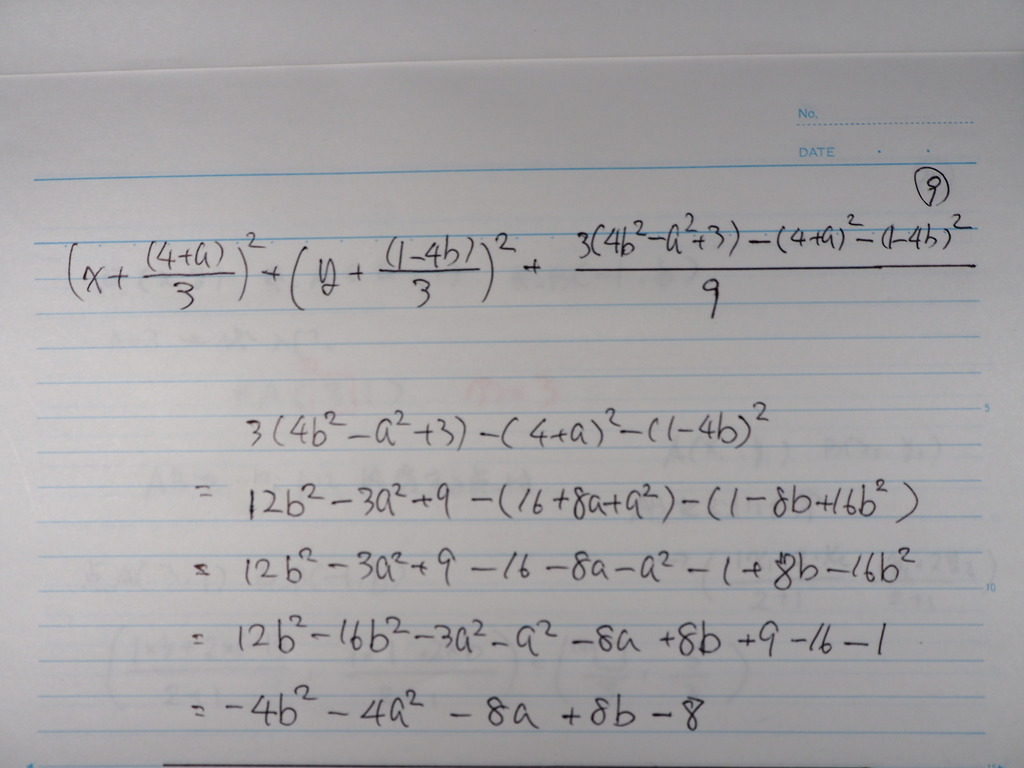 No.
DATE
⑨
(x + (4+a)/3)² + (y + (1-4b)/3)² + (3(4b²-a²+3) - (4+a)² - (1-4b)²)/9
3(4b² - a² + 3) - (4+a)² - (1-4b)²
= 12b² - 3a² + 9 - (16 + 8a + a²) - (1 - 8b + 16b²)
= 12b² - 3a² + 9 - 16 - 8a - a² - 1 + 8b - 16b²
= 12b² - 16b² - 3a² - a² - 8a + 8b + 9 - 16 - 1
= -4b² - 4a² - 8a + 8b - 8
5
10